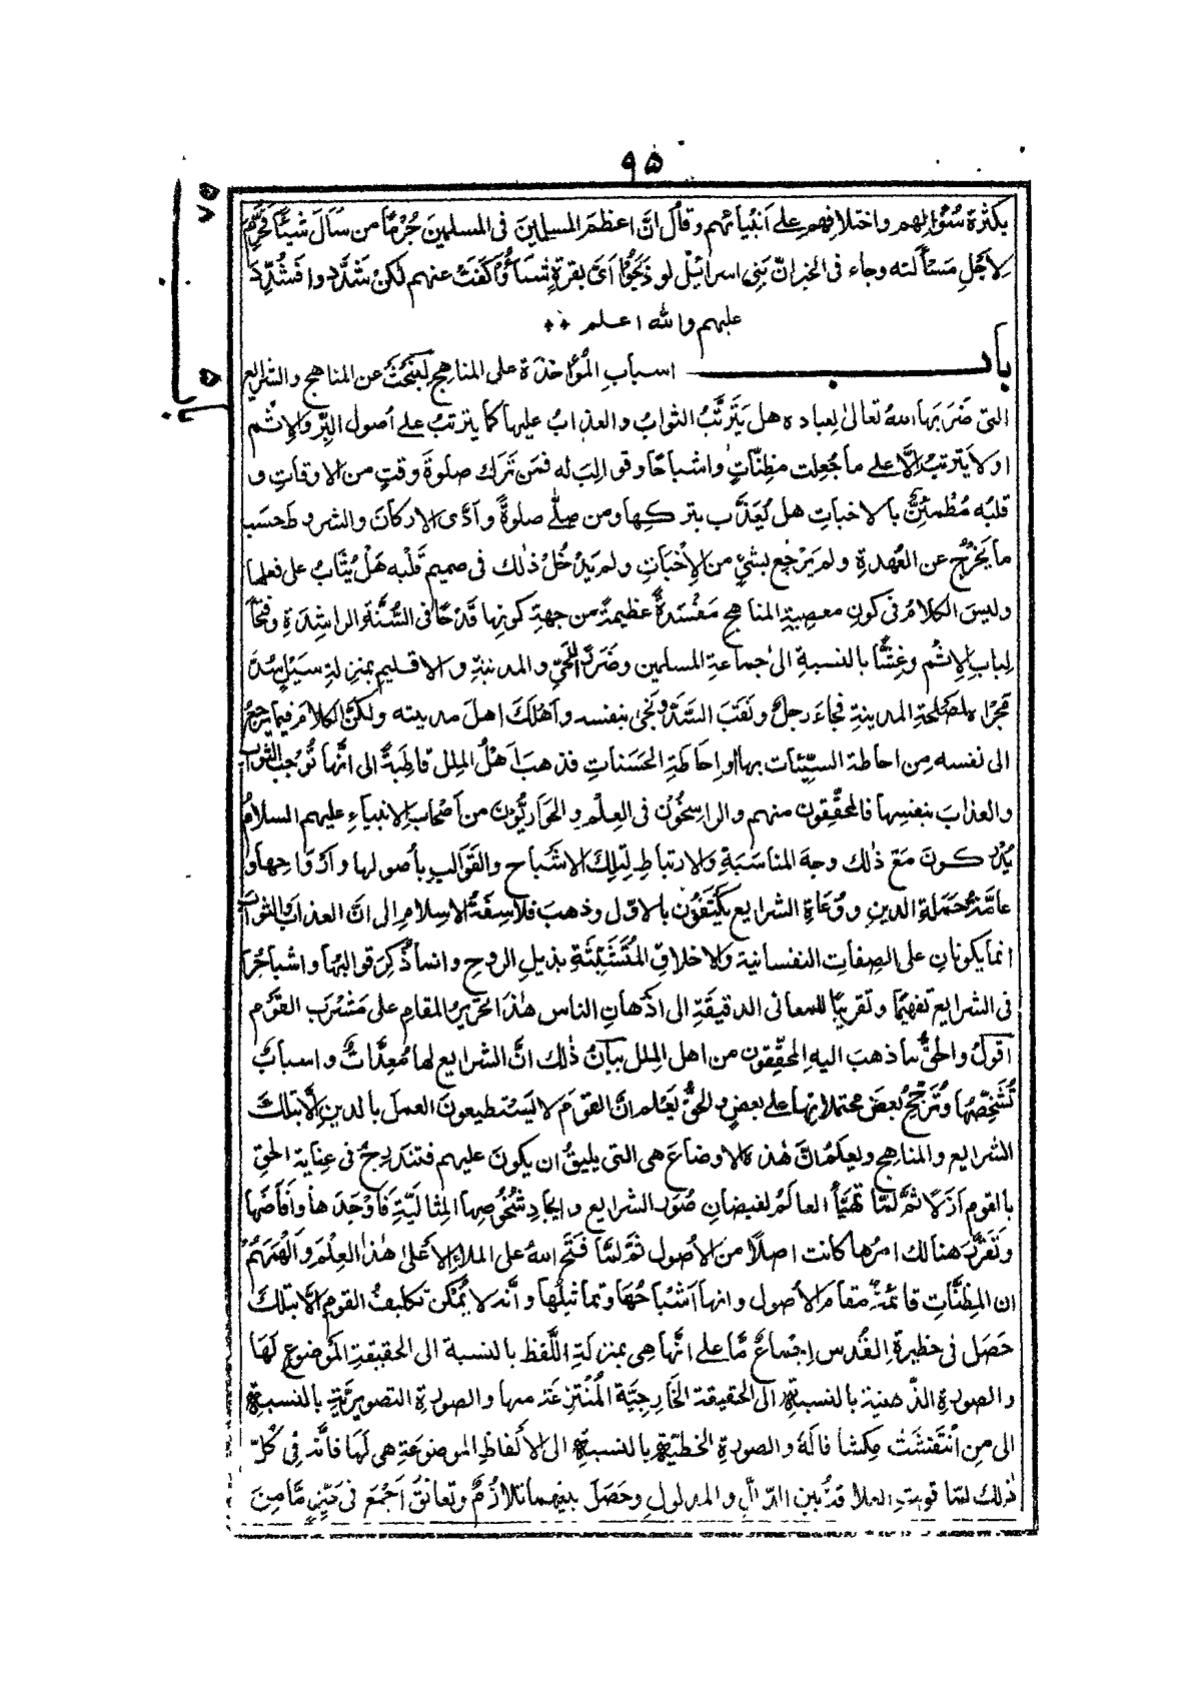 ٩٥
بكثرة سُؤالهم واختلافِهم على اَنبُيائهم وقال انّ اعظمَ المسلمينَ فى المسلمينَ جُرْمًا من سَاَلَ شيئًا فحُرِّمَ
لِاَجْلِ مَسْأَلته وجاء فى الخبر انّ بَنِى اسرائيلَ لو ذبَحُوْا اَىَّ بقرةٍ شَاؤُا كَفَتْ عنهم لكنْ شَدَّدوا فَشُدِّدَ
عليهم والله اعلم
باب اسبابِ المُؤاخذة على المناهج لِنَبْحَثْ عن المناهج والشرايع
التى ضَرَبَها اللهُ تعالىٰ لِعباده هل يَتَرتَّبُ الثوابُ والعذابُ عليها كما يترتبُ على اُصول البِرّ والاِثْم
اولا يترتبُ اِلَّا على ما جُعِلت مظِنّاتٍ واشباحًا وقوالِبَ له فمَن تَرَك صلوةَ وقتٍ من الاوقاتِ و
قلبُه مُطْمئِنٌّ بالاخباتِ هل يُعَذَّب بتركِها ومن صلّٰى صلوةً واَدَّى الاركانَ والشروطَ حسَبَ
ما يَخْرُجُ عن العُهدةِ ولم يَرْجِع بشئٍ من الاِخْبَاتِ ولم يَدْخُلْ ذٰلك فى صميمِ قَلْبِه هَلْ يُثَابُ على فعلها
وليسَ الكلامُ فى كونِ معصيةِ المناهج مَفْسَدةً عظيمةً من جهةِ كونِها قَدْحًا فى السُّنَّةِ الراشِدَةِ وفَتْحًا
لِبابِ الاِثْم وغِشًّا بالنسبة الىٰ جماعةِ المسلمين وضَررًا للحَيِّ والمدينة والاقليم بمنزلةِ سَيْلٍ سُدَّ
مَجْراه لمصلحةِ المدينةِ فجاءَ رجلٌ ونَقَبَ السَّدَّ ونَجٰى بنفسه واَهْلَكَ اهلَ مدينته ولكنَّ الكلامَ فيما يَرجِعُ
الى نفسه مِن احاطةِ السيّئات بها او اِحَاطَةِ الحَسَناتِ فذهبَ اَهْلُ المِلل قاطِبةً الى انَّها تُوْجِبُ الثوابَ
والعذابَ بنفسِها فالمحقِّقون منهم والراسِخُوْن فى العِلْمِ والحَوَاريُّوْنَ من اَصْحابِ الاَنبياءِ عليهم السلامُ
يُدْرِكونَ مَعَ ذٰلك وجهَ المناسَبَةِ والارتباط لِتلكَ الاشْبَاح والقَوَالبِ بأصولها واَرْوَاحِها و
عامَّةُ حَمَلةِ الدينِ ووُعَاةِ الشرايع يَكتَفُوْن بالاوّل وذهبَ فلاسِفةُ الاسلامِ الى انَّ العذابَ والثوابَ
انما يكونانِ على الصِفاتِ النفسانية والاخلاقِ المُتَشَبِّثَةِ بذيلِ الروحِ وانما ذُكِرَ قوالبُها واشباحُها
فى الشرايع تفهيمًا وتقريبًا للمعانى الدقيقَةِ الى اذْهانِ الناس هٰذا تحريرُ المقامِ على مَشْرَب القَوْمِ
اَقولُ والحقُّ ما ذهبَ اليهِ المحقِّقون من اهل المِلل بيانُ ذٰلك انَّ الشرايع لها مُعِدَّاتٌ واسبابٌ
تُشَخِّصُها وتُرَجِّحُ بعضَ محتملاتِها على بعضٍ والحقُّ يَعْلم انَّ القومَ لا يَسْتطيعونَ العملَ بالدينِ اِلَّا بتلكَ
الشرايع والمناهج ويعلمُ انَّ هٰذه الاوضاعَ هى التى يليقُ ان يكونَ عليهم فتَندرِجُ فى عِناية الحقِّ
بالقومِ اَزَلًا ثمّ لمّا تَهَيَّأَ العالَمُ لفيضانِ صُوَرِ الشرايع وايجادِ شُخُوصِها المِثاليّةِ فاَوْجَدَها واَفَاضَها
وتَقَرَّرَ هنالك امرُها كانت اصلًا من الاُصول ثمّ لمّا فَتَح اللهُ على الملاءِ الاَعْلىٰ هٰذا العِلْمَ واَلْهَمَهُمْ
ان المظِنَّاتِ قائمةٌ مقامَ الاُصول وانها اَشْبَاحُهَا وتماثيلُها واَنَّه لا يُمْكن تكليفُ القومِ اِلَّا بتلكَ
حَصَل فى حَظيرةِ القُدس اِجْماعٌ مَّا على انَّها هى بمنزلةِ اللَّفظِ بالنسبة الى الحقيقةِ المَوضوعِ لَهَا
والصورةِ الذّهنية بالنسبةِ الى الحقيقة الخَارجيَّة المُنْتزعَة منها والصورةِ التصويريّةِ بالنسبةِ
الى مَنِ انْتَقَشَتْ مِكشافًا لَهُ والصورةِ الخطيّةِ بالنسبةِ الى الاَلفاظِ الموضوعةِ هى لَهَا فانَّه فى كُلّ
ذٰلك لمّا قويتِ العلاقةُ بين الدّالّ والمدلولِ وحَصَلَ بينهما تلازُمٌ وتعانقٌ اَجْمعَ فى حَيِّزٍ مَّا مِنَ